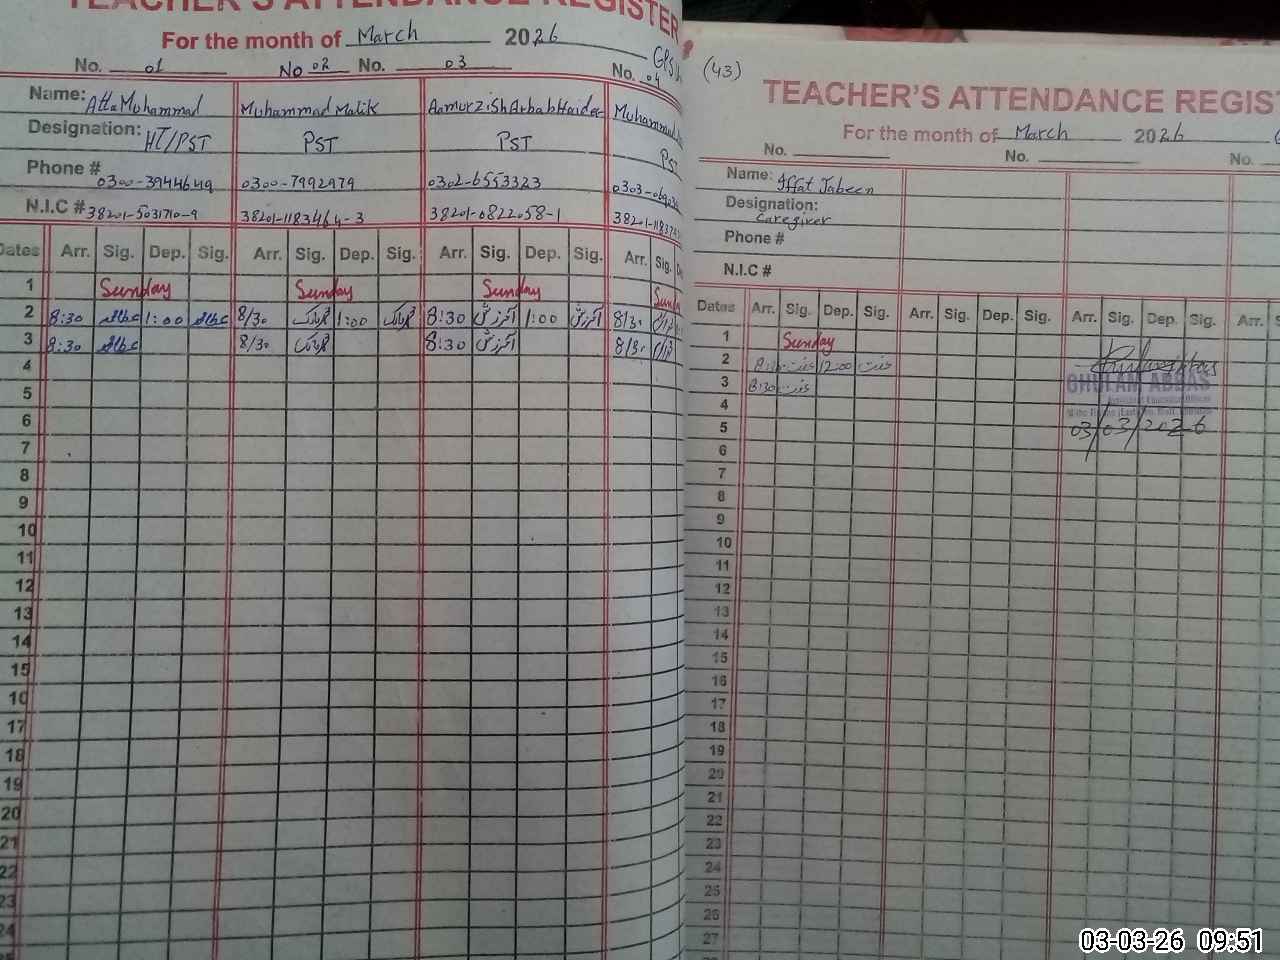 TEACHER'S ATTENDANCE REGISTER
For the month of March 2026
No. 01 No 02 No. 03 No. 04
Name: Atta Mohammad Muhammad Malik Aamurzish Arbab Haider Muhammad
Designation: HT/PST PST PST PST
Phone # 0300-3944649 0300-7992979 0302-6553323 0303-
N.I.C # 38201-5031710-9 38201-1183464-3 38201-0822058-1 38201-
Dates Arr. Sig. Dep. Sig. Arr. Sig. Dep. Sig. Arr. Sig. Dep. Sig. Arr. Sig.
1 Sunday Sunday Sunday
2 8:30 1:00 8/30 1:00 8:30 1:00 8/30
3 8:30 8/30 8:30 8/30
4
5
6
7
8
9
10
11
12
13
14
15
10
17
18
19
20
21
22
23
24
(43)
TEACHER'S ATTENDANCE REGIS
For the month of March 2026
No. No. No.
Name: Iffat Jabeen
Designation: Caregiver
Phone #
N.I.C #
Dates Arr. Sig. Dep. Sig. Arr. Sig. Dep. Sig. Arr. Sig. Dep. Sig. Arr.
1 Sunday
2 12:00
3 8:30
GHULAM ABBAS
4
5 03/03/2026
6
7
8
9
10
11
12
13
14
15
16
17
18
19
20
21
22
23
24
25
26
27
03-03-26 09:51